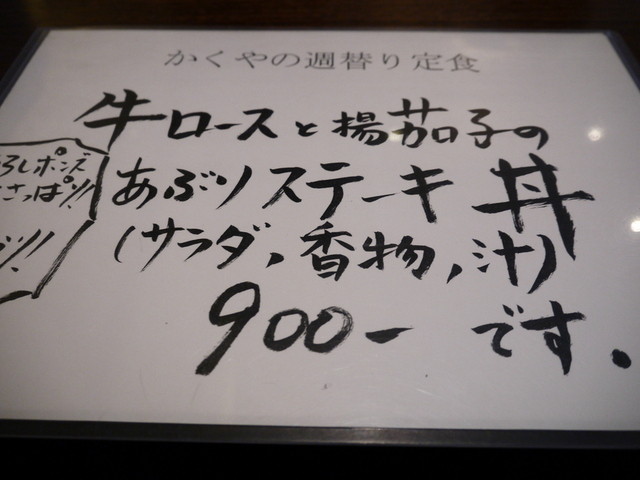 かくやの週替り定食
牛ロースと揚茄子の
あぶりステーキ丼
(サラダ,香物,汁)
900ー です。
ろしポンズ
さっぱり!!